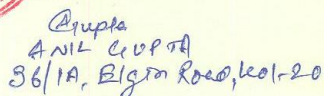 AGupta
ANIL GUPTA
36/1A, Elgin Road, Kol-20